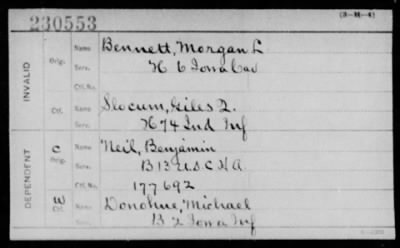 230553
(3-M-4)
INVALID
Orig.
Name Bennett, Morgan L
Serv. H 6 Iowa Cav
Ctf. No.
Ctf.
Name Slocum, Giles Z.
Serv. H 74 Ind Inf
DEPENDENT
C
Orig.
Name Neil, Benjamin
Serv. B 13 U.S.C.H.A.
Ctf. No. 177692
W
Ctf.
Name Donohue, Michael
Serv. B 2 Iowa Inf